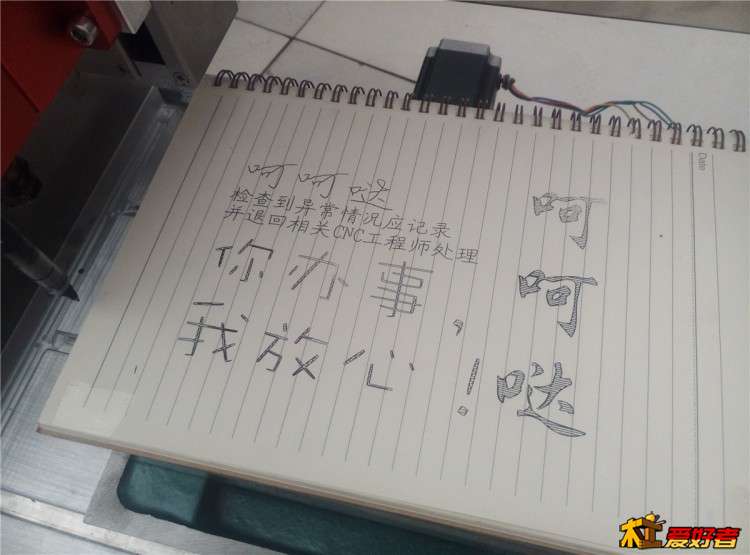 呵呵哒
检查到异常情况应记录
并退回相关CNC工程师处理
你办事，
我放心！
呵呵哒
Date
木工爱好者